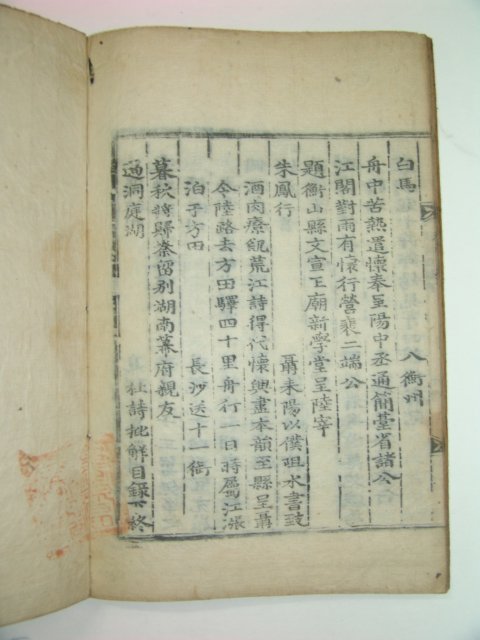 白馬 入衡州
舟中苦熱遣懷奉呈陽中丞通簡臺省諸公
江閣對雨有懷行營裴二端公
題衡山縣文宣王廟新學堂呈陸宰
朱鳳行 聶耒陽以僕阻水書致
酒肉療飢荒江詩得代懷興盡本韻至縣呈聶
令陸路去方田驛四十里舟行一日時屬江漲
泊于方田 長沙送十一銜
暮秋將歸秦留别湖南幕府親友
過洞庭湖 杜詩批解目錄下終